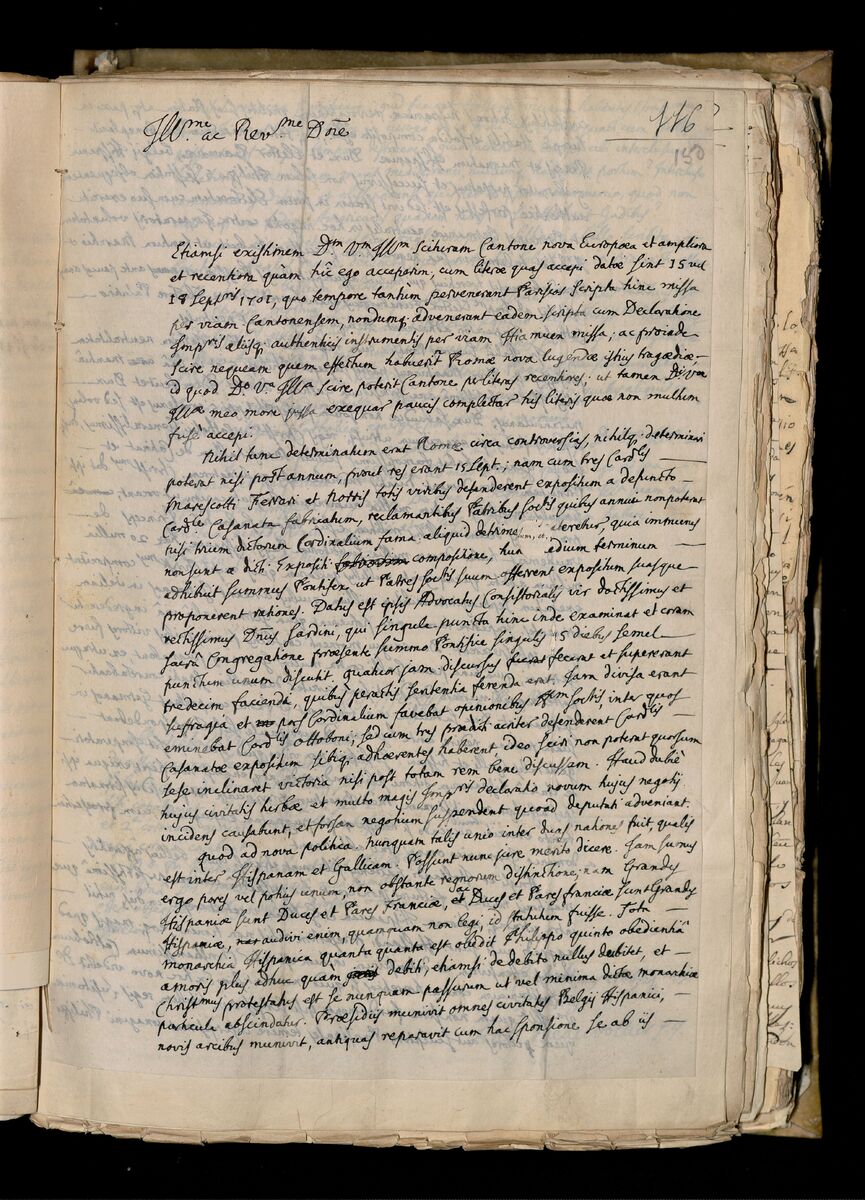 116
150
Ill.me ac Rev.me Dōne
Etiamsi existimem D.m V.m Ill.m scituram Cantone nova Europæa et ampliora
et recentiora quàm hîc ego acceperim, cum literæ quas accepi datæ sint 15 vel
18 Sept.ris 1701, quo tempore tantùm pervenerant Parisios scripta hinc missa
per viam Cantonensem, nondumq; advenerant eadem scripta cum Declaratione
Imp.ris aliisq; authenticis instrumentis per viam Hiamuen missa; ac proinde
scire nequeam quem effectum habuerit Romæ nova lugendæ istius tragœdiæ —
id quod D.o V.a Ill.a scire poterit Cantone per literas recentiores; ut tamen D.is V.æ
Ill.æ meo more jussa exequar paucis complectar his literis quæ non multum
fusè accepi.
Nihil tunc determinatum erat Romæ circa controversias, nihilq; determinari
poterat nisi post annum, prout res erant 15 Sept.; nam cum tres Card.les —
Marescotti Ferrari et Norris totis viribus defenderent expositum a defuncto —
Card.le Casanata fabricatum, reclamantibus Patribus Soc.tis quibus annui non poterat
nisi trium dictorum Cordinalium fama aliquid detrime eretur, quia immunes
non sunt a dicti Expositi compositione, hun adium terminum —
adhibuit summus Pontifex, ut Patres Soc.tis suum offerrent expositum suasque —
proponerent rationes. Datus est ipsis Advocatus Consistorialis vir doctissimus et
rectissimus Dn̄us Sardini, qui singula puncta hinc inde examinat et coram
sacrâ Congregatione præsente summo Pontifice singulis 15 diebus semel —
punctum unum discutit, quatuor jam discursus fecerat et supererant
tredecim faciendi, quibus peractis sententia ferenda erat. Jam divisa erant
suffragia et pars Cordinalium favebat opinionibus Soc.tis inter quos
eminebat Card.lis Ottoboni; sed cum tres prædicti acriter defenderent Card.lis —
Casanatæ expositum sibiq; adhærentes haberent, ideo sciri non poterat quorsum
sese inclinaret victoria nisi post totam rem bene discussam. Haud dubiè
hujus civitatis turbæ et multo magis Imp.ris declaratio novum hujus negotii
incidens causabunt, et forsan negotium suspendent quoad deputati adveniant.
Quod ad nova politica. Nunquam talis unio inter duas nationes fuit, qualis
est inter Hispanam et Gallicam. Possunt nunc jure merito dicere. Jam sumus
ergo pares vel potius unum, non obstante regnorum distinctione; nam Grandes
Hispaniæ sunt Duces et Pares Franciæ, ac Duces et Pares Franciæ sunt Grandes
Hispaniæ, audivi enim, quamquam non legi, id statutum fuisse. Tota —
monarchia Hispanica quanta quanta est obedit Philippo quinto obedientiâ
amoris plus adhuc quam debiti, etiamsi de debito nullus dubitet, et —
Christ.mus protestatus est se nunquam passurum ut vel minima dictæ monarchiæ
particula abscindatur. Præsidiis munivit omnes civitates Belgij Hispanici, —
novis arcibus munivit, antiquas reparavit cum hac sponsione se ab iis —